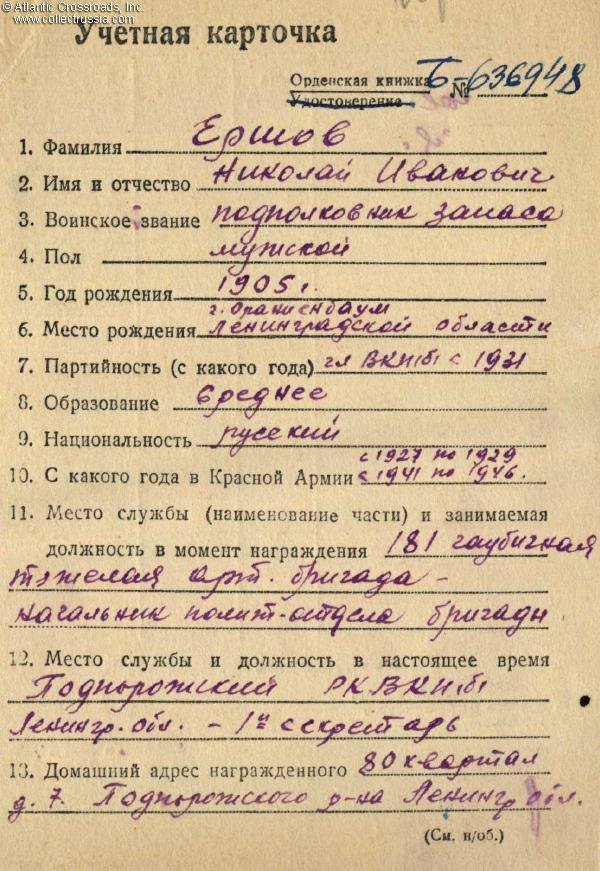 © Atlantic Crossroads, Inc.
www.collectrussia.com
Учетная карточка
Орденская книжка № Б-636948
Удостоверение
1. Фамилия Ершов
2. Имя и отчество Николай Иванович
3. Воинское звание подполковник запаса
4. Пол мужской
5. Год рождения 1905 г.
г. Ораниенбаум
6. Место рождения Ленинградской области
7. Партийность (с какого года) чл ВКП(б) с 1931
8. Образование Среднее
9. Национальность русский
с 1927 по 1929
10. С какого года в Красной Армии с 1941 по 1946.
11. Место службы (наименование части) и занимаемая
должность в момент награждения 181 гаубичная
тяжелая арт. бригада –
начальник полит-отдела бригады
12. Место службы и должность в настоящее время
Подпорожский РК ВКП(б)
Ленингр. обл. – 1й секретарь
13. Домашний адрес награжденного 80 квартал
д. 7. Подпорожского р-на Ленингр обл.
(См. н/об.)